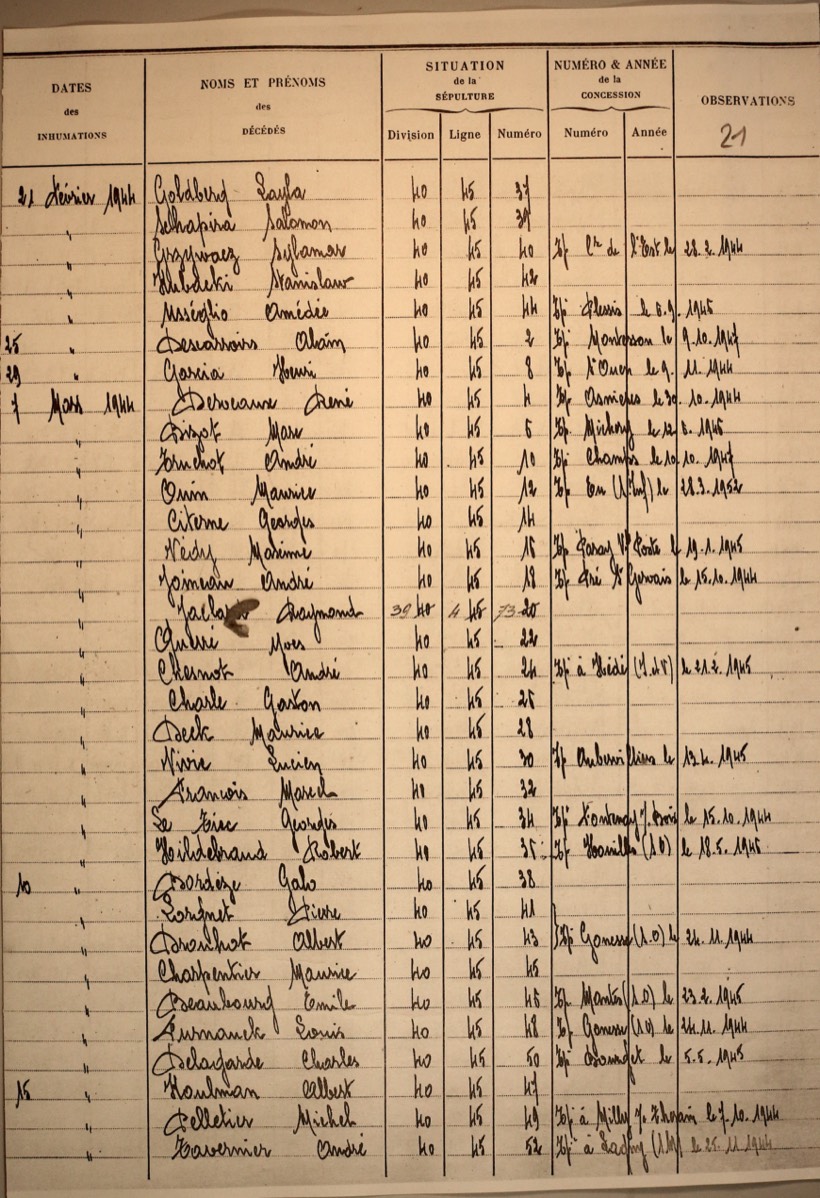 DATES
des
INHUMATIONS
NOMS ET PRÉNOMS
des
DÉCÉDÉS
SITUATION
de la
SÉPULTURE
Division Ligne Numéro
NUMÉRO & ANNÉE
de la
CONCESSION
Numéro Année
OBSERVATIONS
21
21 Février 1944 Goldberg Layla 40 45 37
" Schapira Salomon 40 45 39
" Sylamar 40 45 40 de l'Est le 28.2.1944
" Stanislaw 40 45 42
" Usséglio Amédée 40 45 44 Plessis le 6.9.1945
25 " Descarsoirs 40 45 2 le 9.10.1947
29 " Garcia Henri 40 45 8 St Ouen le 9.11.1944
7 Mars 1944 Deveaux René 40 45 4 Asnières le 30.10.1944
" Dizot Marc 40 45 6 le 12.6.1945
" Truchot André 40 45 10 Champs le 10.10.1947
" Ouin Maurice 40 45 12 Eu (S.Inf) le 28.3.1952
" Citerne Georges 40 45 14
" Védy Maxime 40 45 16 Paray Vlle Poste le 19.1.1945
" André 40 45 18 Pré St Gervais le 15.10.1944
" Raymond 39 40 4 45 73 20
" Querré Yves 40 45 22
" Chesnot André 40 45 24 à Hédé (I.et V) le 21.2.1945
" Charle Gaston 40 45 26
" Deck Maurice 40 45 28
" Nivic Lucien 40 45 30 Aubervilliers le 13.4.1945
" Francois Marcel 40 45 32
" Le Tiec Georges 40 45 34 Fontenay s/Bois le 15.10.1944
" Hildebrand Robert 40 45 36 Houilles (S.O) le 18.5.1945
10 " Bordèze Galo 40 45 38
" Lorgnet Pierre 40 45 41
" Drouhot Albert 40 45 43 Gonesse (S.O) le 24.11.1944
" Charpentier Maurice 40 45 45
" Beaubourg Emile 40 45 46 Mantes (S.O) le 23.2.1945
" Louis 40 45 48 Gonesse (S.O) le 24.11.1944
" Delagarde Charles 40 45 50 Bourget le 5.5.1945
15 " Houlman Albert 40 45 47
" Pelletier Michel 40 45 49 à Milly s/Thérain le 7.10.1944
" Tavernier André 40 45 52 à Lagny (S.M) le 25.11.1944